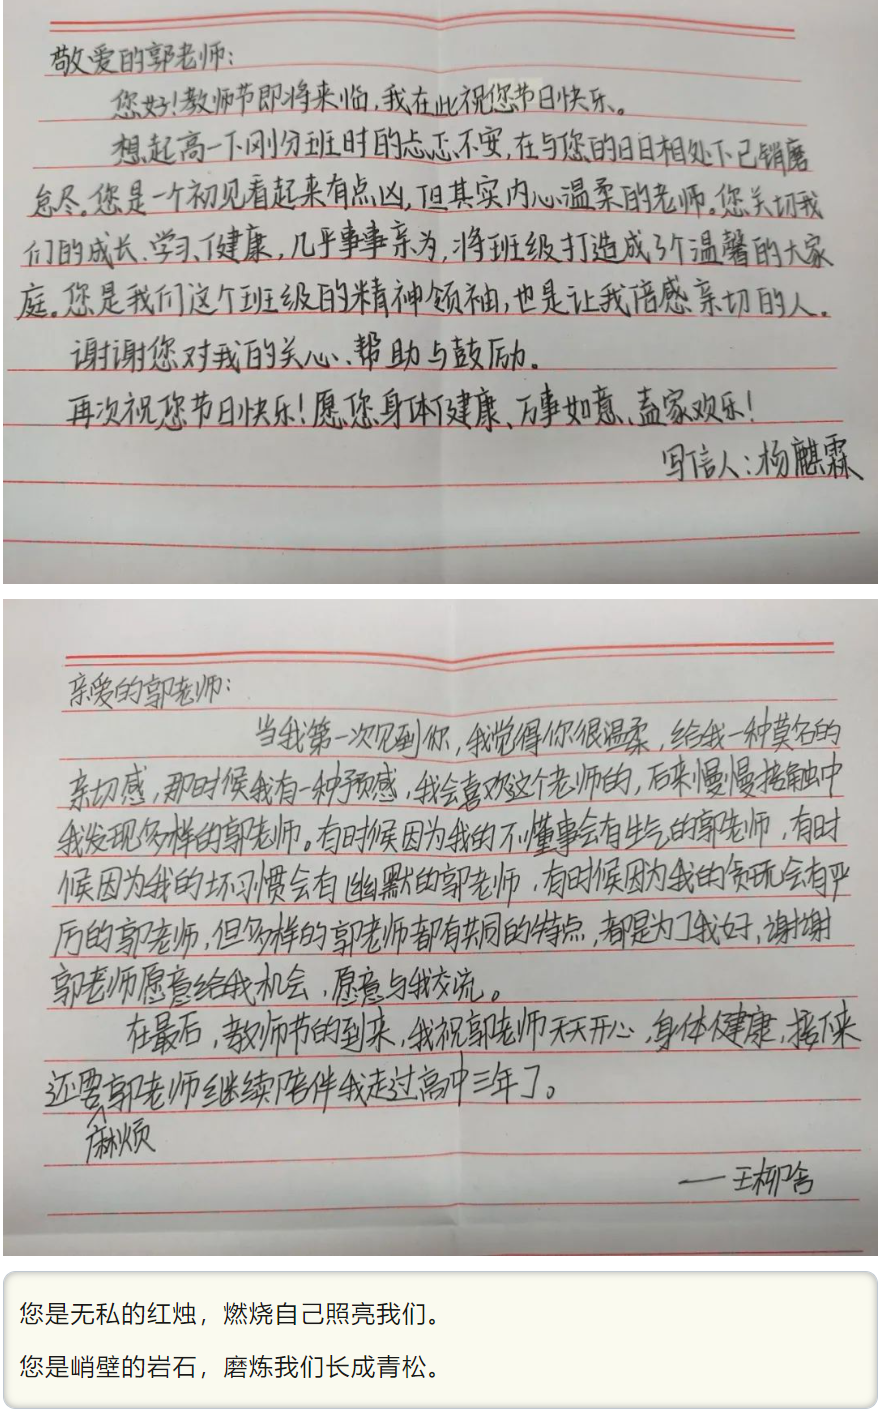 敬爱的郭老师：
您好！教师节即将来临，我在此祝您节日快乐。
想起高一下刚分班时的忐忑不安，在与您的日日相处下已销磨
怠尽。您是一个初见看起来有点凶，但其实内心温柔的老师。您关切我
们的成长、学习、健康，几乎事事亲为，将班级打造成了个温馨的大家
庭。您是我们这个班级的精神领袖，也是让我倍感亲切的人。
谢谢您对我的关心、帮助与鼓励。
再次祝您节日快乐！愿您身体健康、万事如意、盍家欢乐！
写信人：杨麒霖
亲爱的郭老师：
当我第一次见到你，我觉得你很温柔，给我一种莫名的
亲切感，那时候我有一种预感，我会喜欢这个老师的，后来慢慢接触中
我发现多样的郭老师。有时候因为我的不懂事会有生气的郭老师，有时
候因为我的坏习惯会有幽默的郭老师，有时候因为我的贪玩会有严
厉的郭老师，但多样的郭老师都有共同的特点，都是为了我好，谢谢
郭老师愿意给我机会，愿意与我交流。
在最后，教师节的到来，我祝郭老师天天开心，身体健康，接下来
还要郭老师继续陪伴我走过高中三年了。
麻烦
——王柳
您是无私的红烛，燃烧自己照亮我们。
您是峭壁的岩石，磨炼我们长成青松。